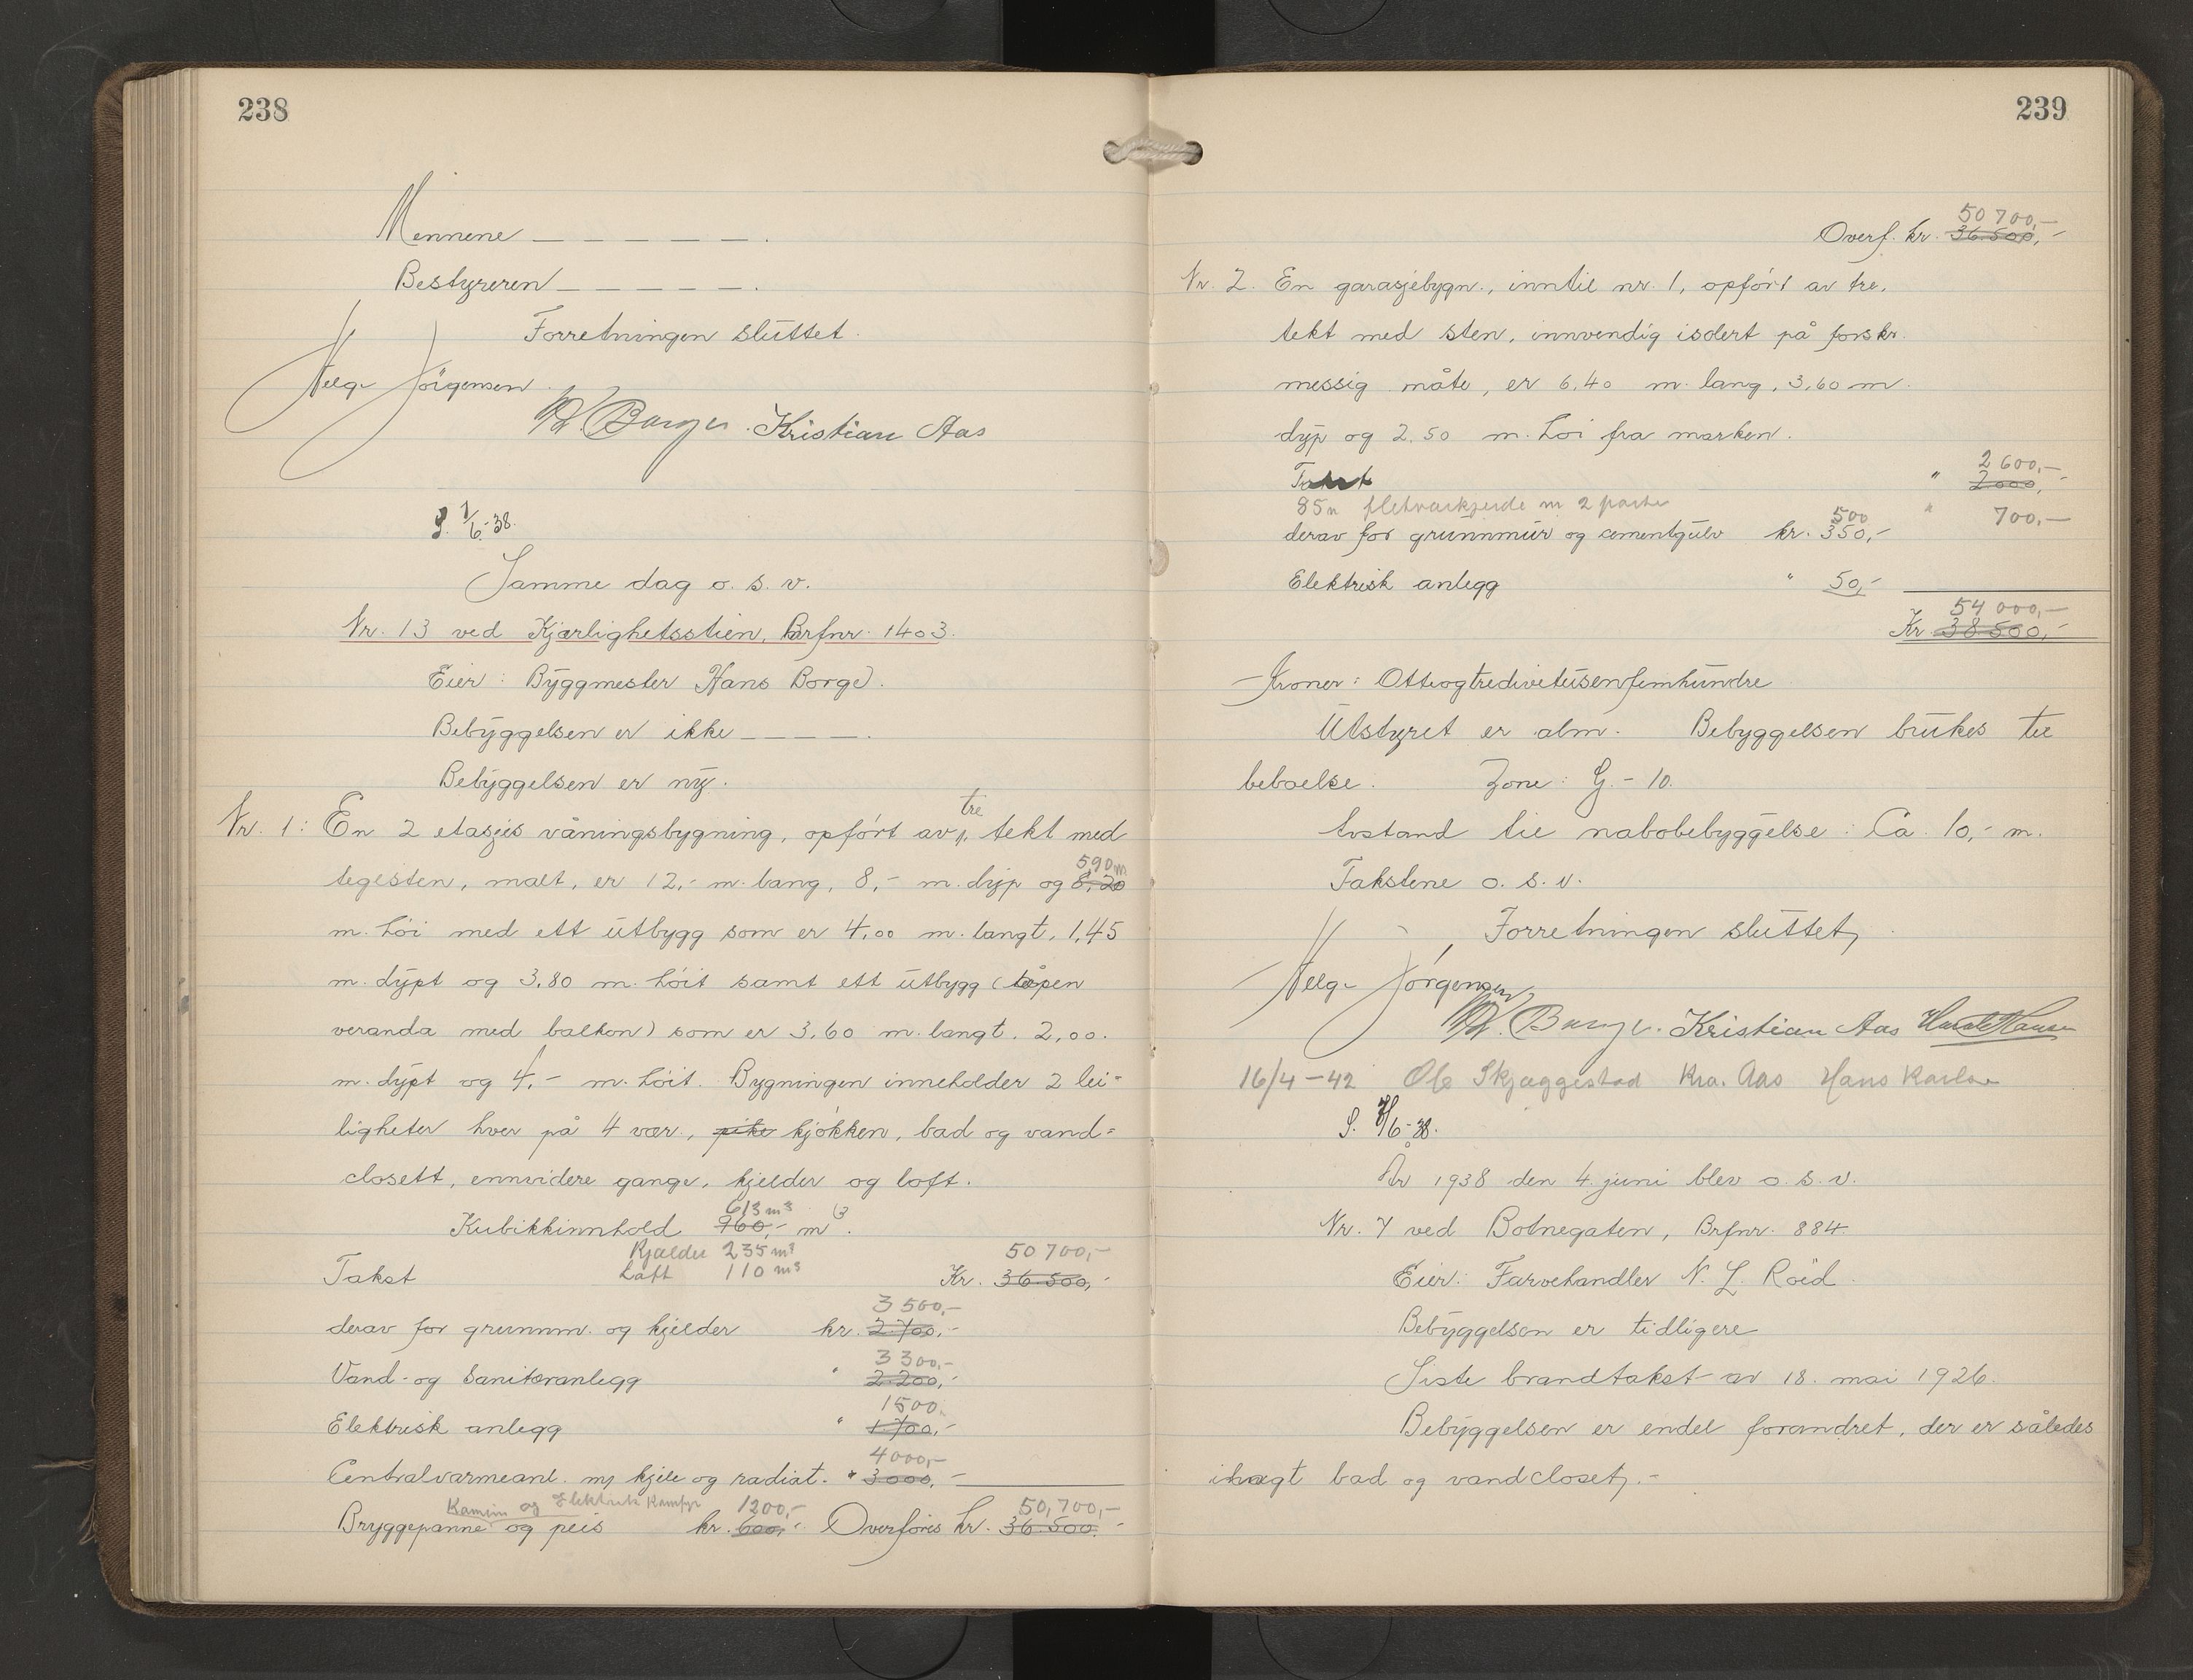 238
Mennene – – – – – .
Bestyreren – – – – – .
Forretningen sluttet.
Helge Jörgensen.
Kristian Aas
S. 7/6-38.
Samme dag o. s. v.
Nr. 13 ved Kjærlighetsstien, Brfnr. 1403.
Eier: Byggmester Hans Borge.
Bebyggelsen er ikke – – – – .
Bebyggelsen er ny.
tre
Nr. 1: En 2 etasjes våningsbygning, opført av, tekt med
590 m
teglsten, malt, er 12,- m. lang, 8,- m. dyp og 8,20
m. höi med ett utbygg som er 4,00 m. langt, 1,45
m. dypt og 3,80 m. höit samt ett utbygg (åpen
veranda med balkon) som er 3,60 m. langt. 2,00.
m. dypt og 4,- m. höit. Bygningen inneholder 2 lei-
ligheter hver på 4 vær., pike kjökken, bad og vand-
closett, ennvidere gange, kjelder og loft.
613 m³
Kubikkinnhold 960,- m³.
Kjælder 235 m³ 50 700,-
Loft 110 m³
Takst Kr. 36.500,-
3 500,-
derav for grunnm. og kjelder kr. 2.700,-
3 300,-
Vand- og Sanitæranlegg " 2.200,-
1500,
Elektrisk anlegg " 1.700,-
4000,-
Centralvarmeanl. m/ kjele og radiat. " 3.000,-
Kamin og Elektrisk Komfyr 1200,- 50,700,-
Bryggepanne og peis kr. 600,- Overföres kr. 36.500,-
239
50 700,-
Overf. kr. 36.500,-
Nr. 2. En garasjebygn., inntil nr. 1, opfört av tre,
tekt med sten, innvendig isolert på forskr.
messig måte, er 6,40 m. lang, 3,60 m.
dyp og 2,50 m. höi fra marken.
2 600,-
Takst " 2.000,-
85 m 2 " 700,-
500
derav for grunnmur og cementgulv kr. 350,-
Elektrisk anlegg " 50,-
54 000,-
Kr 38.500,-
Kroner: Otteogtredivetusenfemhundre
Utstyret er alm. Bebyggelsen brukes til
beboelse. Zone: G. - 10.
Avstand til nabobebyggelse: Ca. 10,- m.
Takstene o. s. v.
Forretningen sluttet,
Helge Jörgensen
Kristian Aas Harald Hansen
16/4-42 Ole Skjæggestad Kra. Aas Hans Karlsen
S. 7/6-38.
År 1938 den 4. juni blev o. s. v.
Nr. 7 ved Botnegaten, Brfnr. 884.
Eier: Farvehandler N. L. Röed.
Bebyggelsen er tidligere
Siste brandtakst av 18. mai 1926.
Bebyggelsen er endel forandret, der er således
ilagt bad og vandcloset,.-